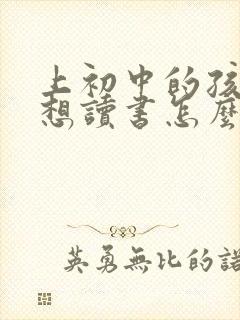 上初中的孩
想讀書怎麼
英勇無比的諾